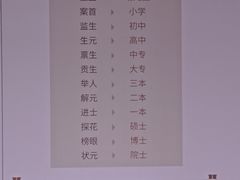 案首 小学
监生 初中
生元 高中
禀生 中专
贡生 大专
举人 三本
解元 二本
进士 一本
探花 硕士
榜眼 博士
状元 院士